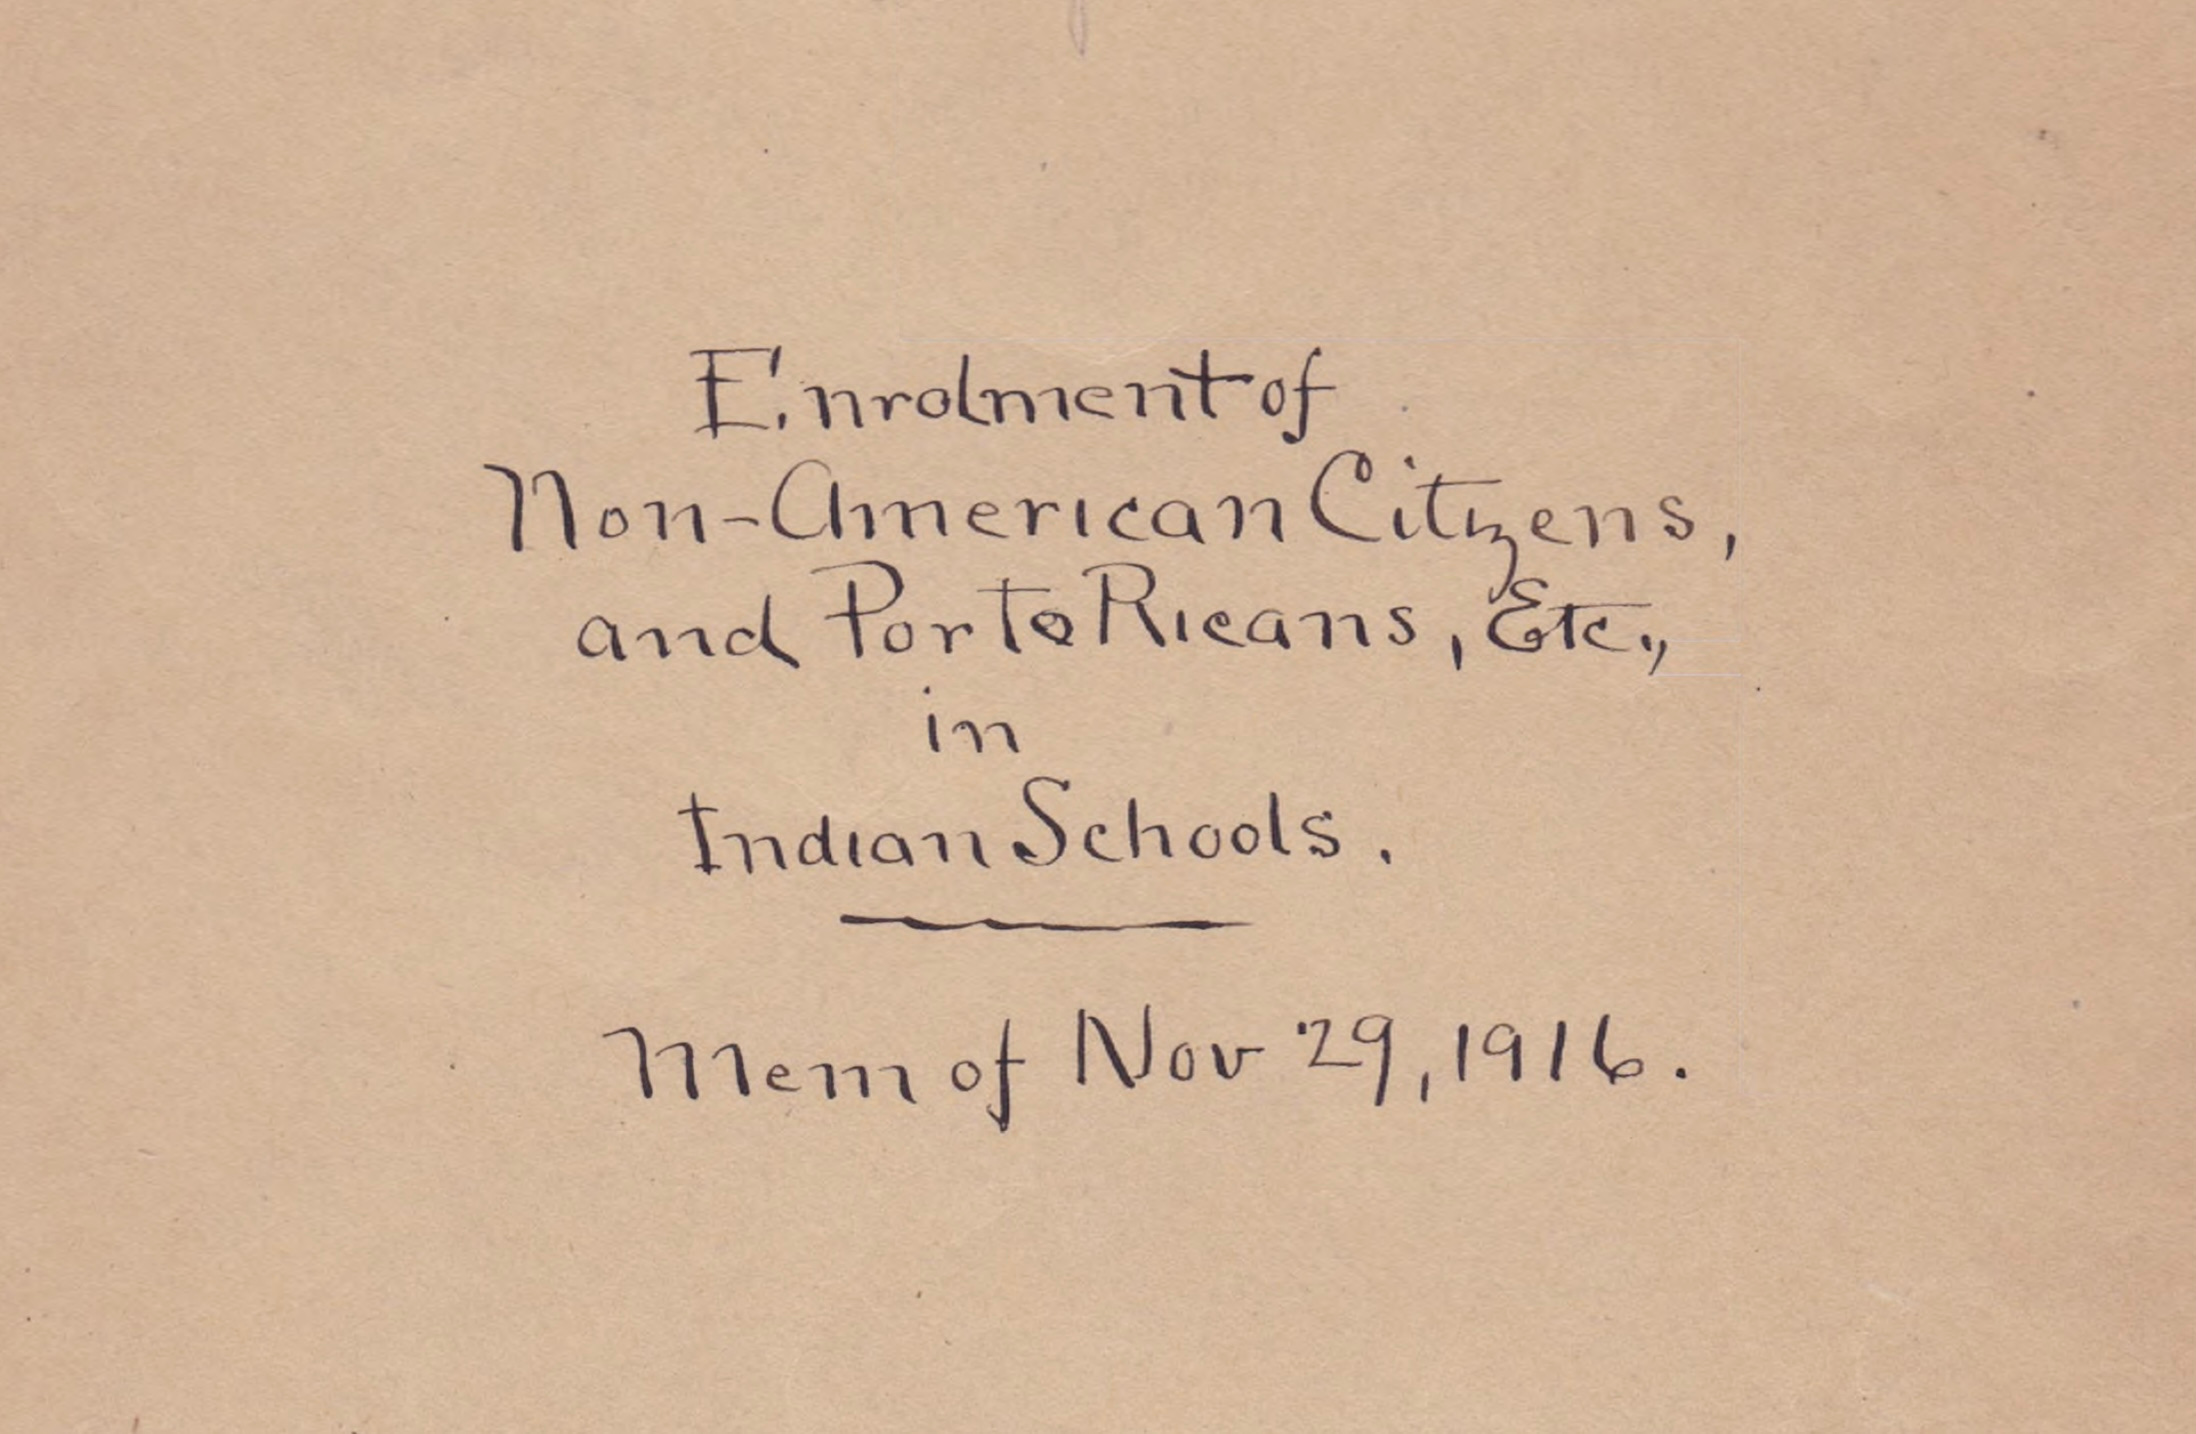 Enrolment of
Non-American Citizens,
and Porto Ricans, Etc.,
in
Indian Schools.
Mem of Nov 29, 1916.